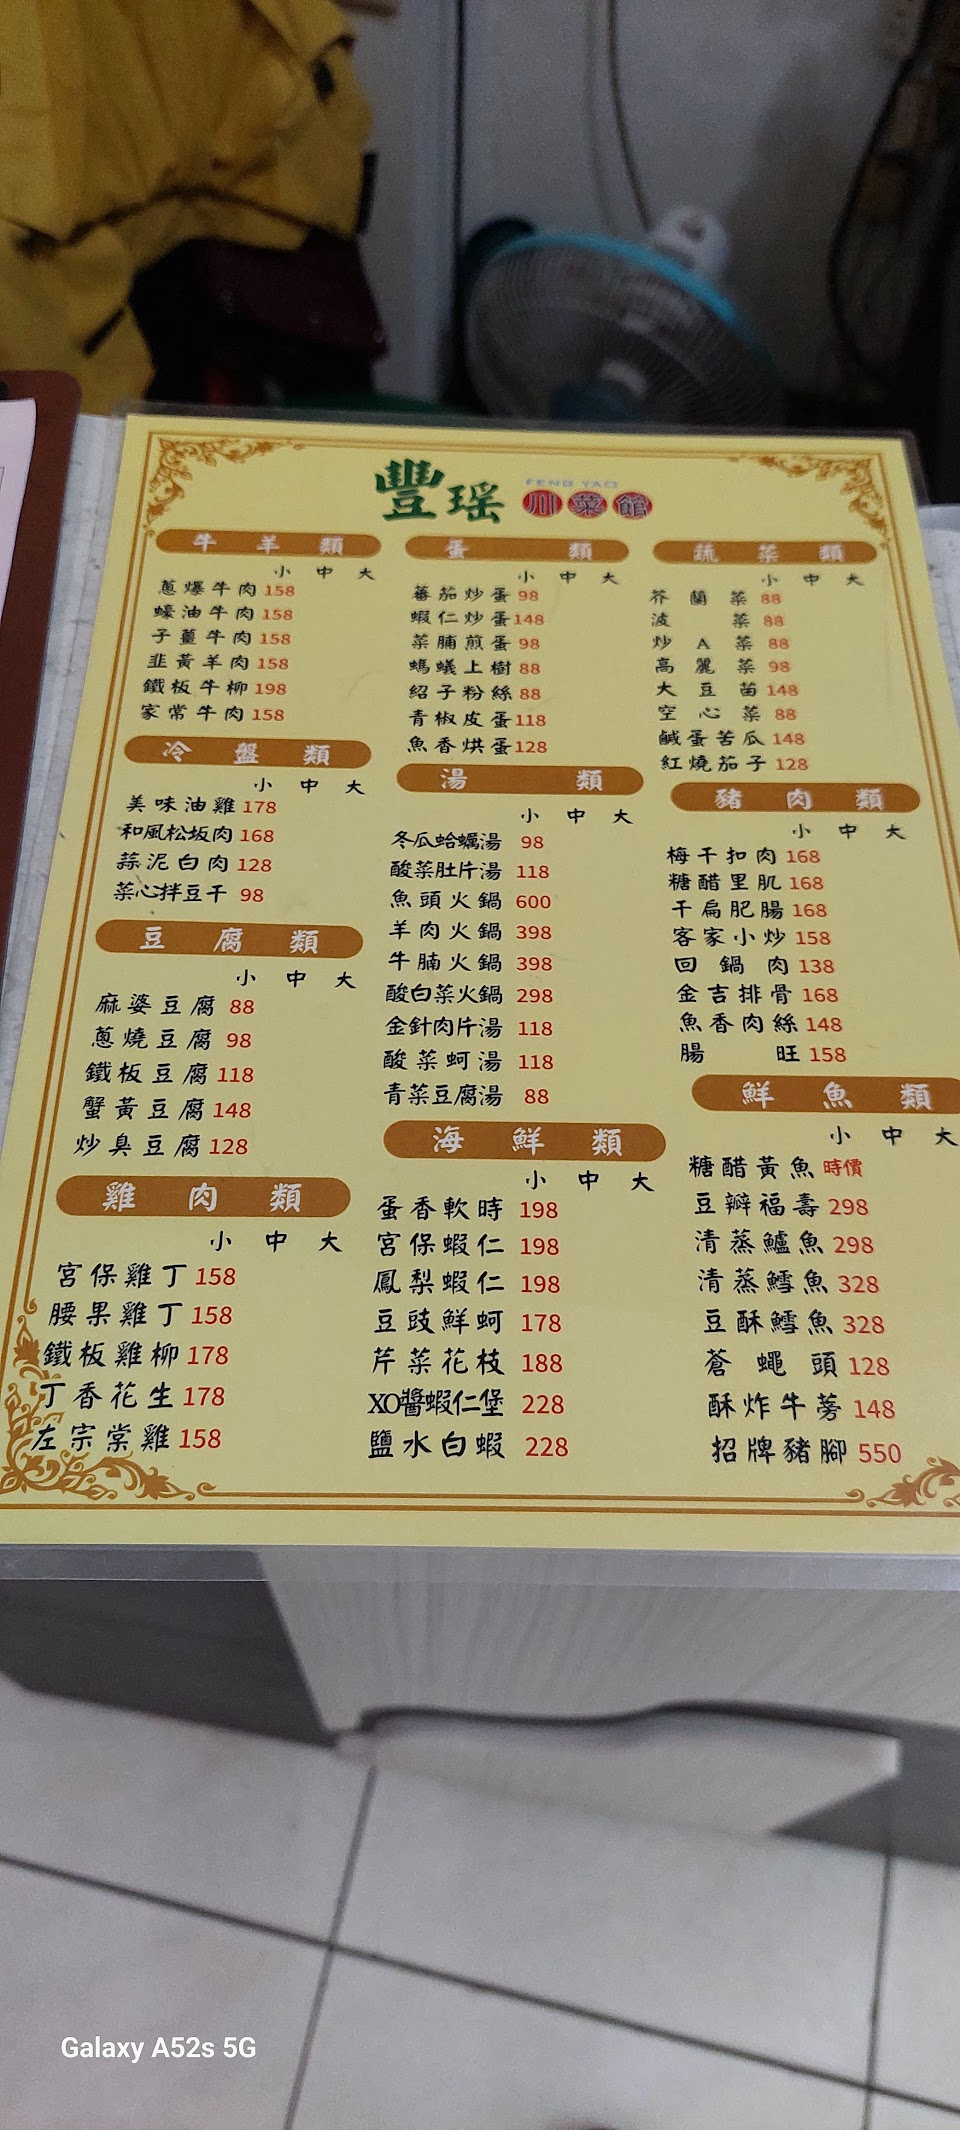 豐瑤
FENG YAO
川菜館
牛羊類
小 中 大
蔥爆牛肉 158
蠔油牛肉 158
子薑牛肉 158
韭黃羊肉 158
鐵板牛柳 198
家常牛肉 158
冷盤類
小 中 大
美味油雞 178
和風松坂肉 168
蒜泥白肉 128
菜心拌豆干 98
豆腐類
小 中 大
麻婆豆腐 88
蔥燒豆腐 98
鐵板豆腐 118
蟹黃豆腐 148
炒臭豆腐 128
雞肉類
小 中 大
宮保雞丁 158
腰果雞丁 158
鐵板雞柳 178
丁香花生 178
左宗棠雞 158
蛋類
小 中 大
蕃茄炒蛋 98
蝦仁炒蛋 148
菜脯煎蛋 98
螞蟻上樹 88
紹子粉絲 88
青椒皮蛋 118
魚香烘蛋 128
湯類
小 中 大
冬瓜蛤蠣湯 98
酸菜肚片湯 118
魚頭火鍋 600
羊肉火鍋 398
牛腩火鍋 398
酸白菜火鍋 298
金針肉片湯 118
酸菜蚵湯 118
青菜豆腐湯 88
海鮮類
小 中 大
蛋香軟時 198
宮保蝦仁 198
鳳梨蝦仁 198
豆豉鮮蚵 178
芹菜花枝 188
XO醬蝦仁堡 228
鹽水白蝦 228
蔬菜類
小 中 大
芥蘭菜 88
波菜 88
炒A菜 88
高麗菜 98
大豆苗 148
空心菜 88
鹹蛋苦瓜 148
紅燒茄子 128
豬肉類
小 中 大
梅干扣肉 168
糖醋里肌 168
干扁肥腸 168
客家小炒 158
回鍋肉 138
金吉排骨 168
魚香肉絲 148
腸旺 158
鮮魚類
小 中 大
糖醋黃魚 時價
豆瓣福壽 298
清蒸鱸魚 298
清蒸鱈魚 328
豆酥鱈魚 328
蒼蠅頭 128
酥炸牛蒡 148
招牌豬腳 550
Galaxy A52s 5G